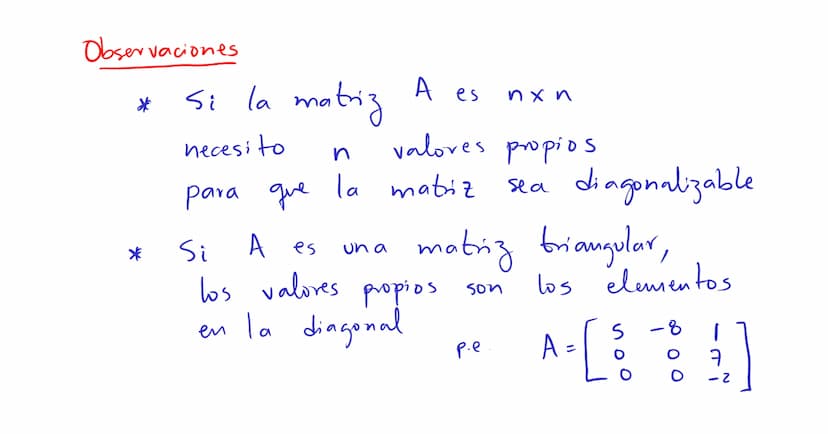 Observaciones
* Si la matriz A es n x n
necesito n valores propios
para que la matriz sea diagonalizable
* Si A es una matriz triangular,
los valores propios son los elementos
en la diagonal
p.e. A = [ 5 -8 1
0 0 7
0 0 -2 ]